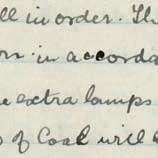 ll in order. Th
in accorda
e extra lamps
s of Coal will